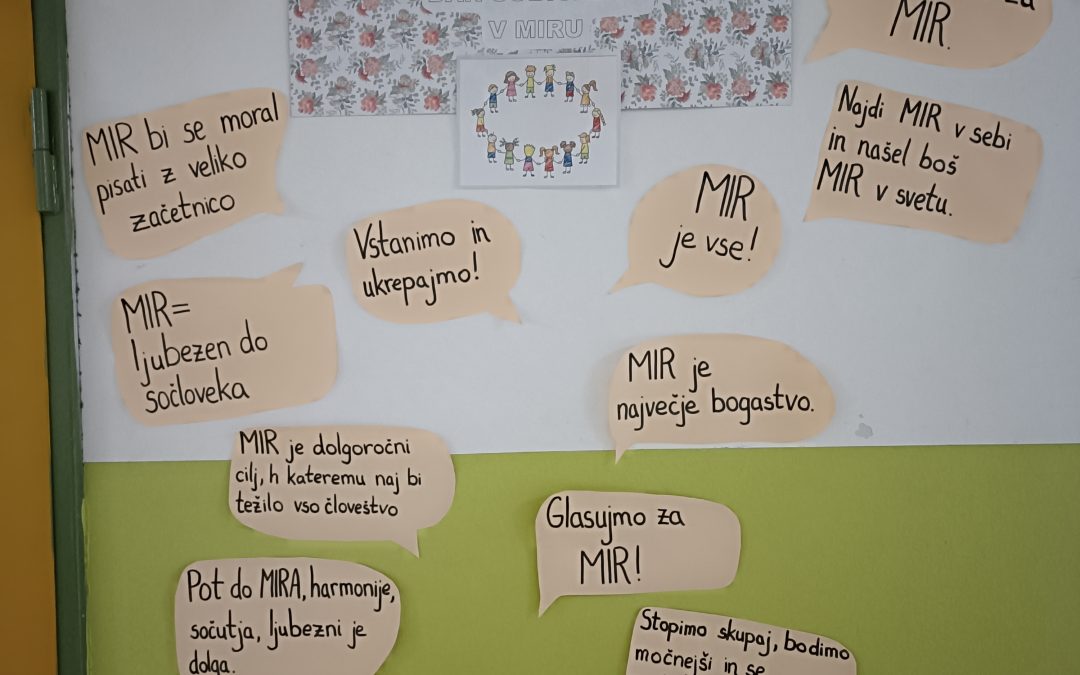 V MIRU
za
MIR.
MIR bi se moral
pisati z veliko
začetnico
Najdi MIR v sebi
in našel boš
MIR v svetu.
MIR
je vse!
Vstanimo in
ukrepajmo!
MIR=
ljubezen do
sočloveka
MIR je
največje bogastvo.
MIR je dolgoročni
cilj, h kateremu naj bi
težilo vso človeštvo
Glasujmo za
MIR!
Pot do MIRA, harmonije,
sočutja, ljubezni je
dolga.
Stopimo skupaj, bodimo
močnejši in se